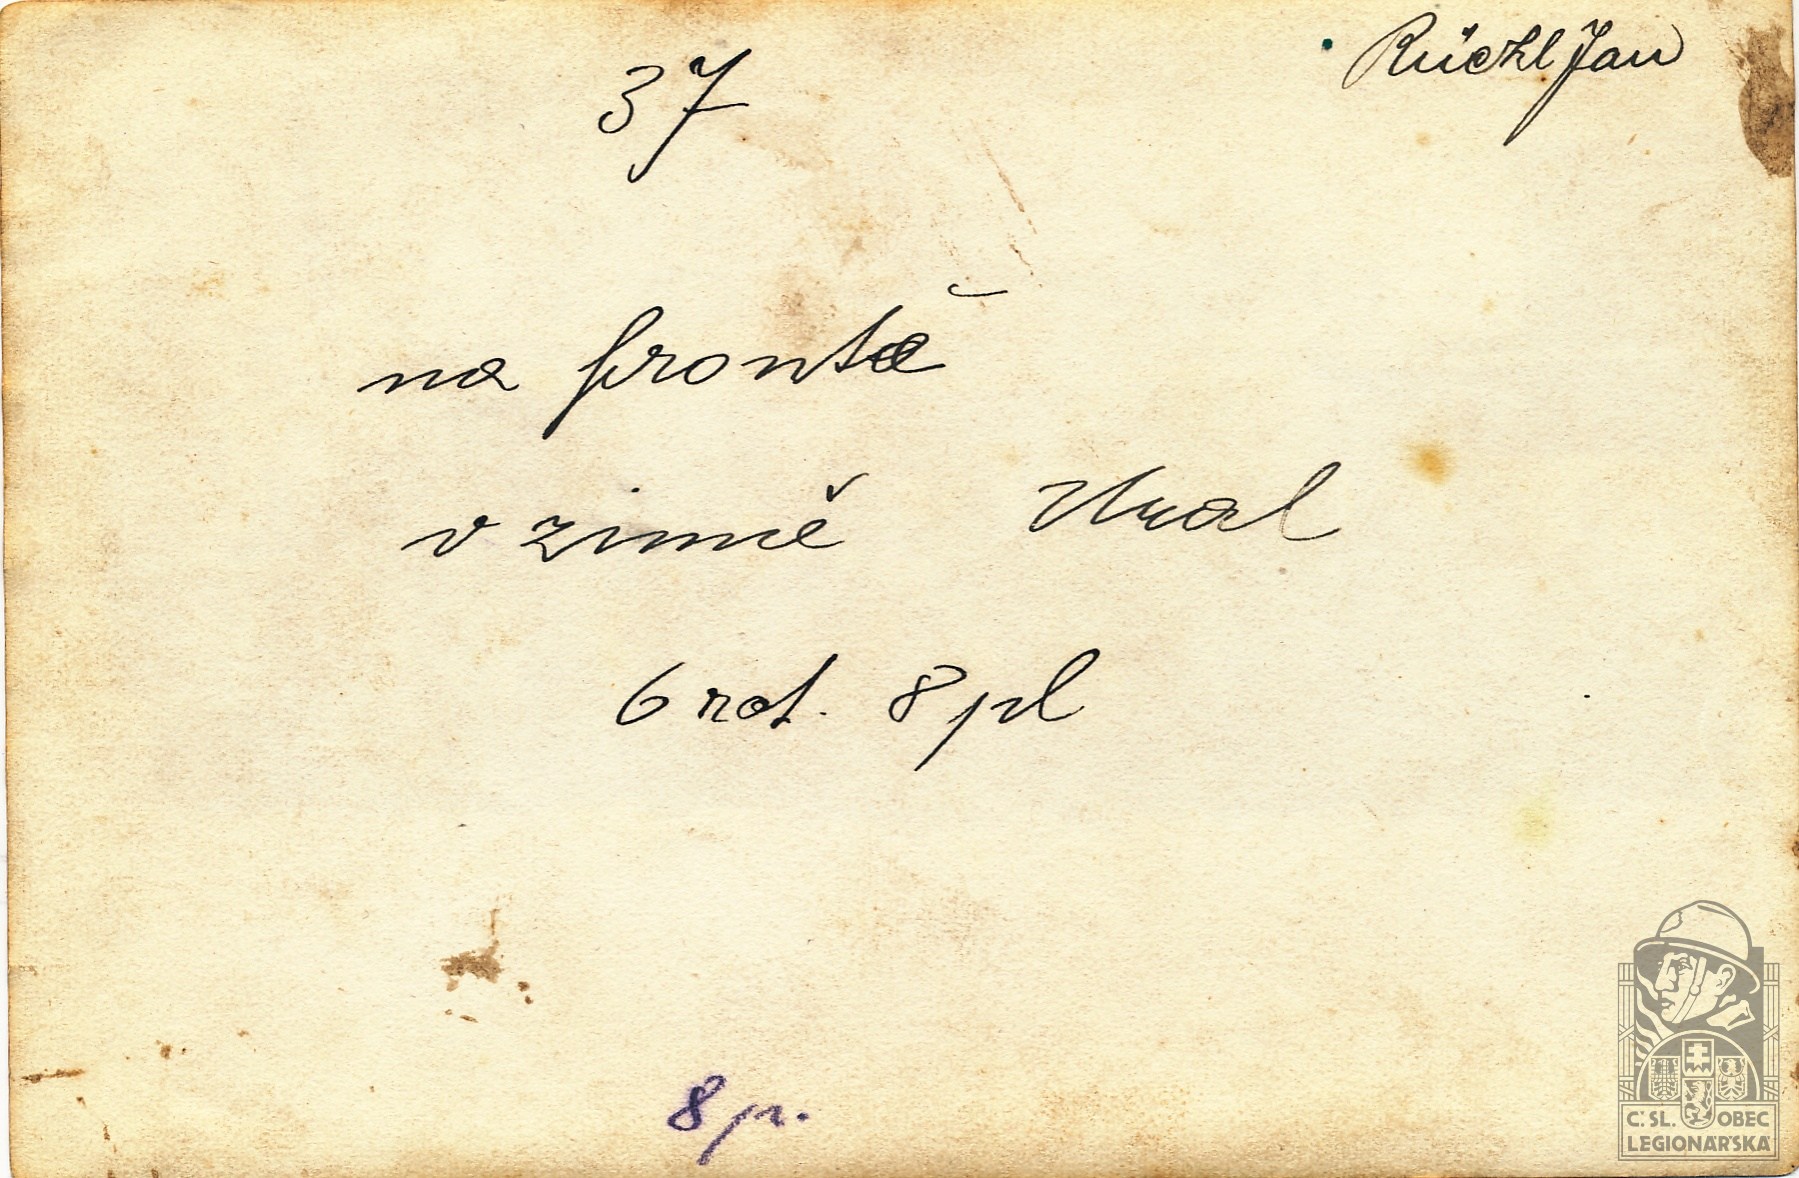 37
Rückl Jan
na frontě
v zimě Ural
6 rot. 8 pl
8 p.
Č. SL. OBEC
LEGIONÁŘSKÁ